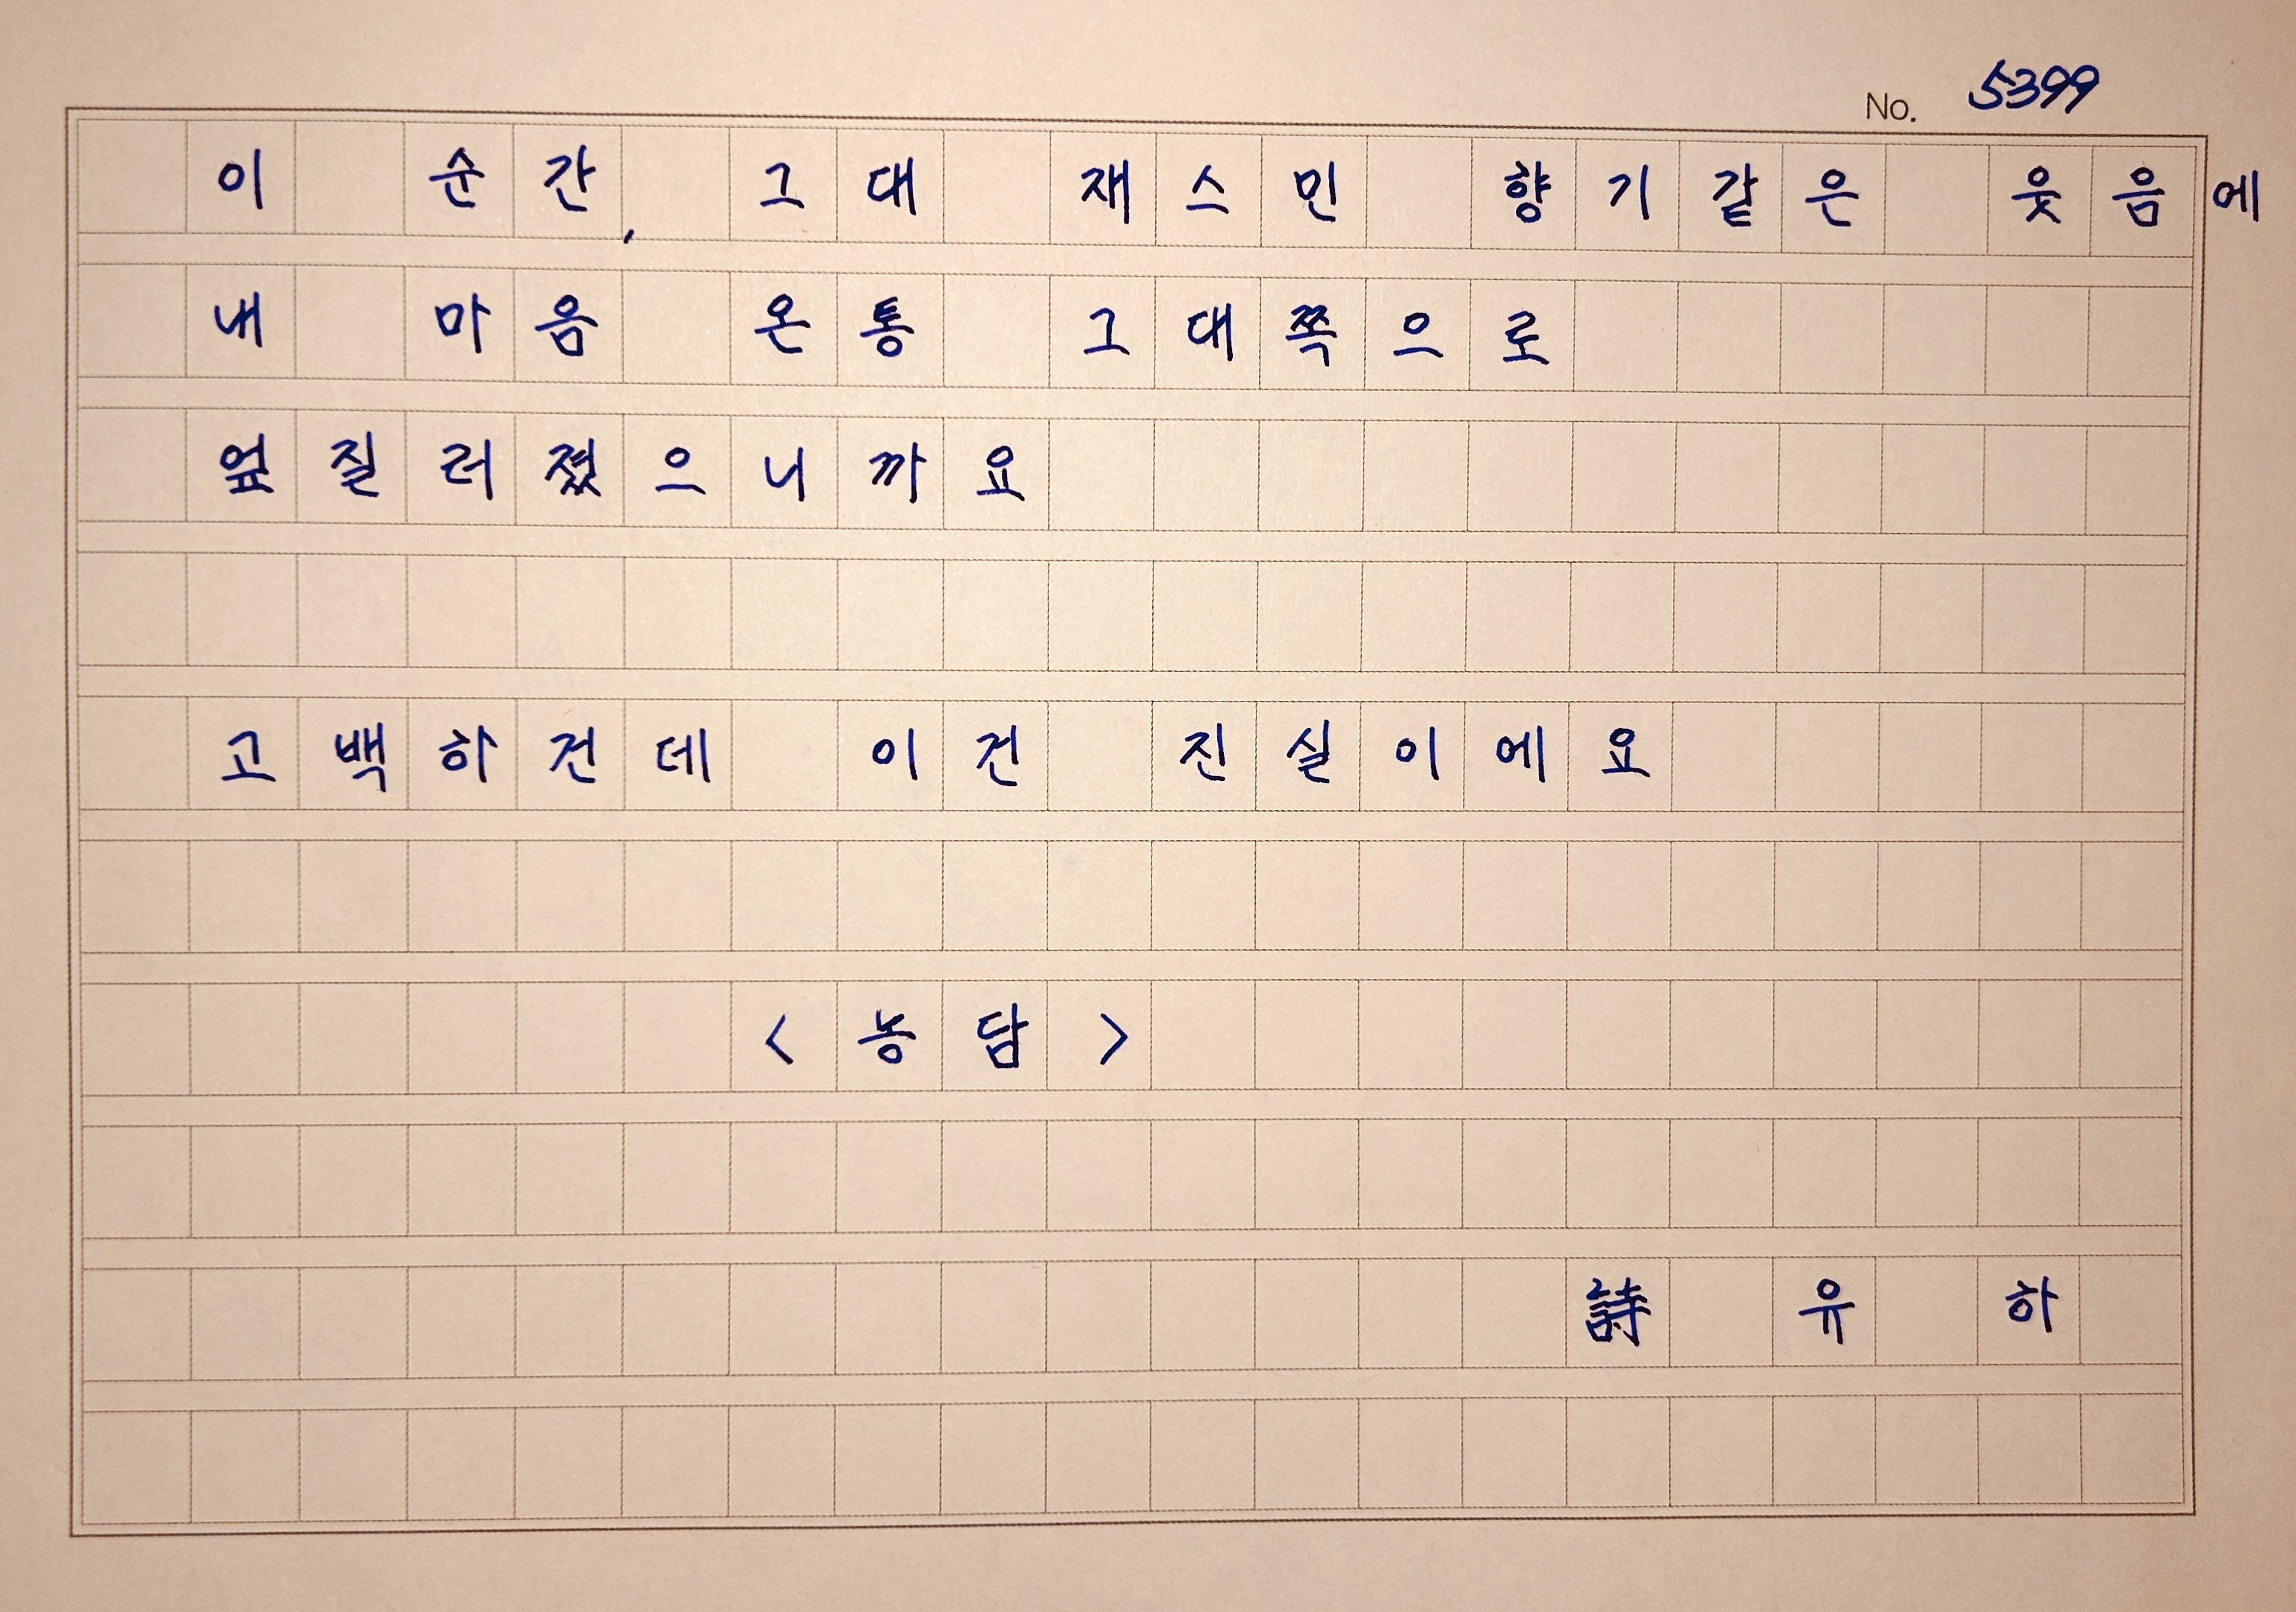 No. 5399
이 순간, 그대 재스민 향기같은 웃음에
내 마음 온통 그대쪽으로
엎질러졌으니까요
고백하건데 이건 진실이에요
<농담>
詩 유 하